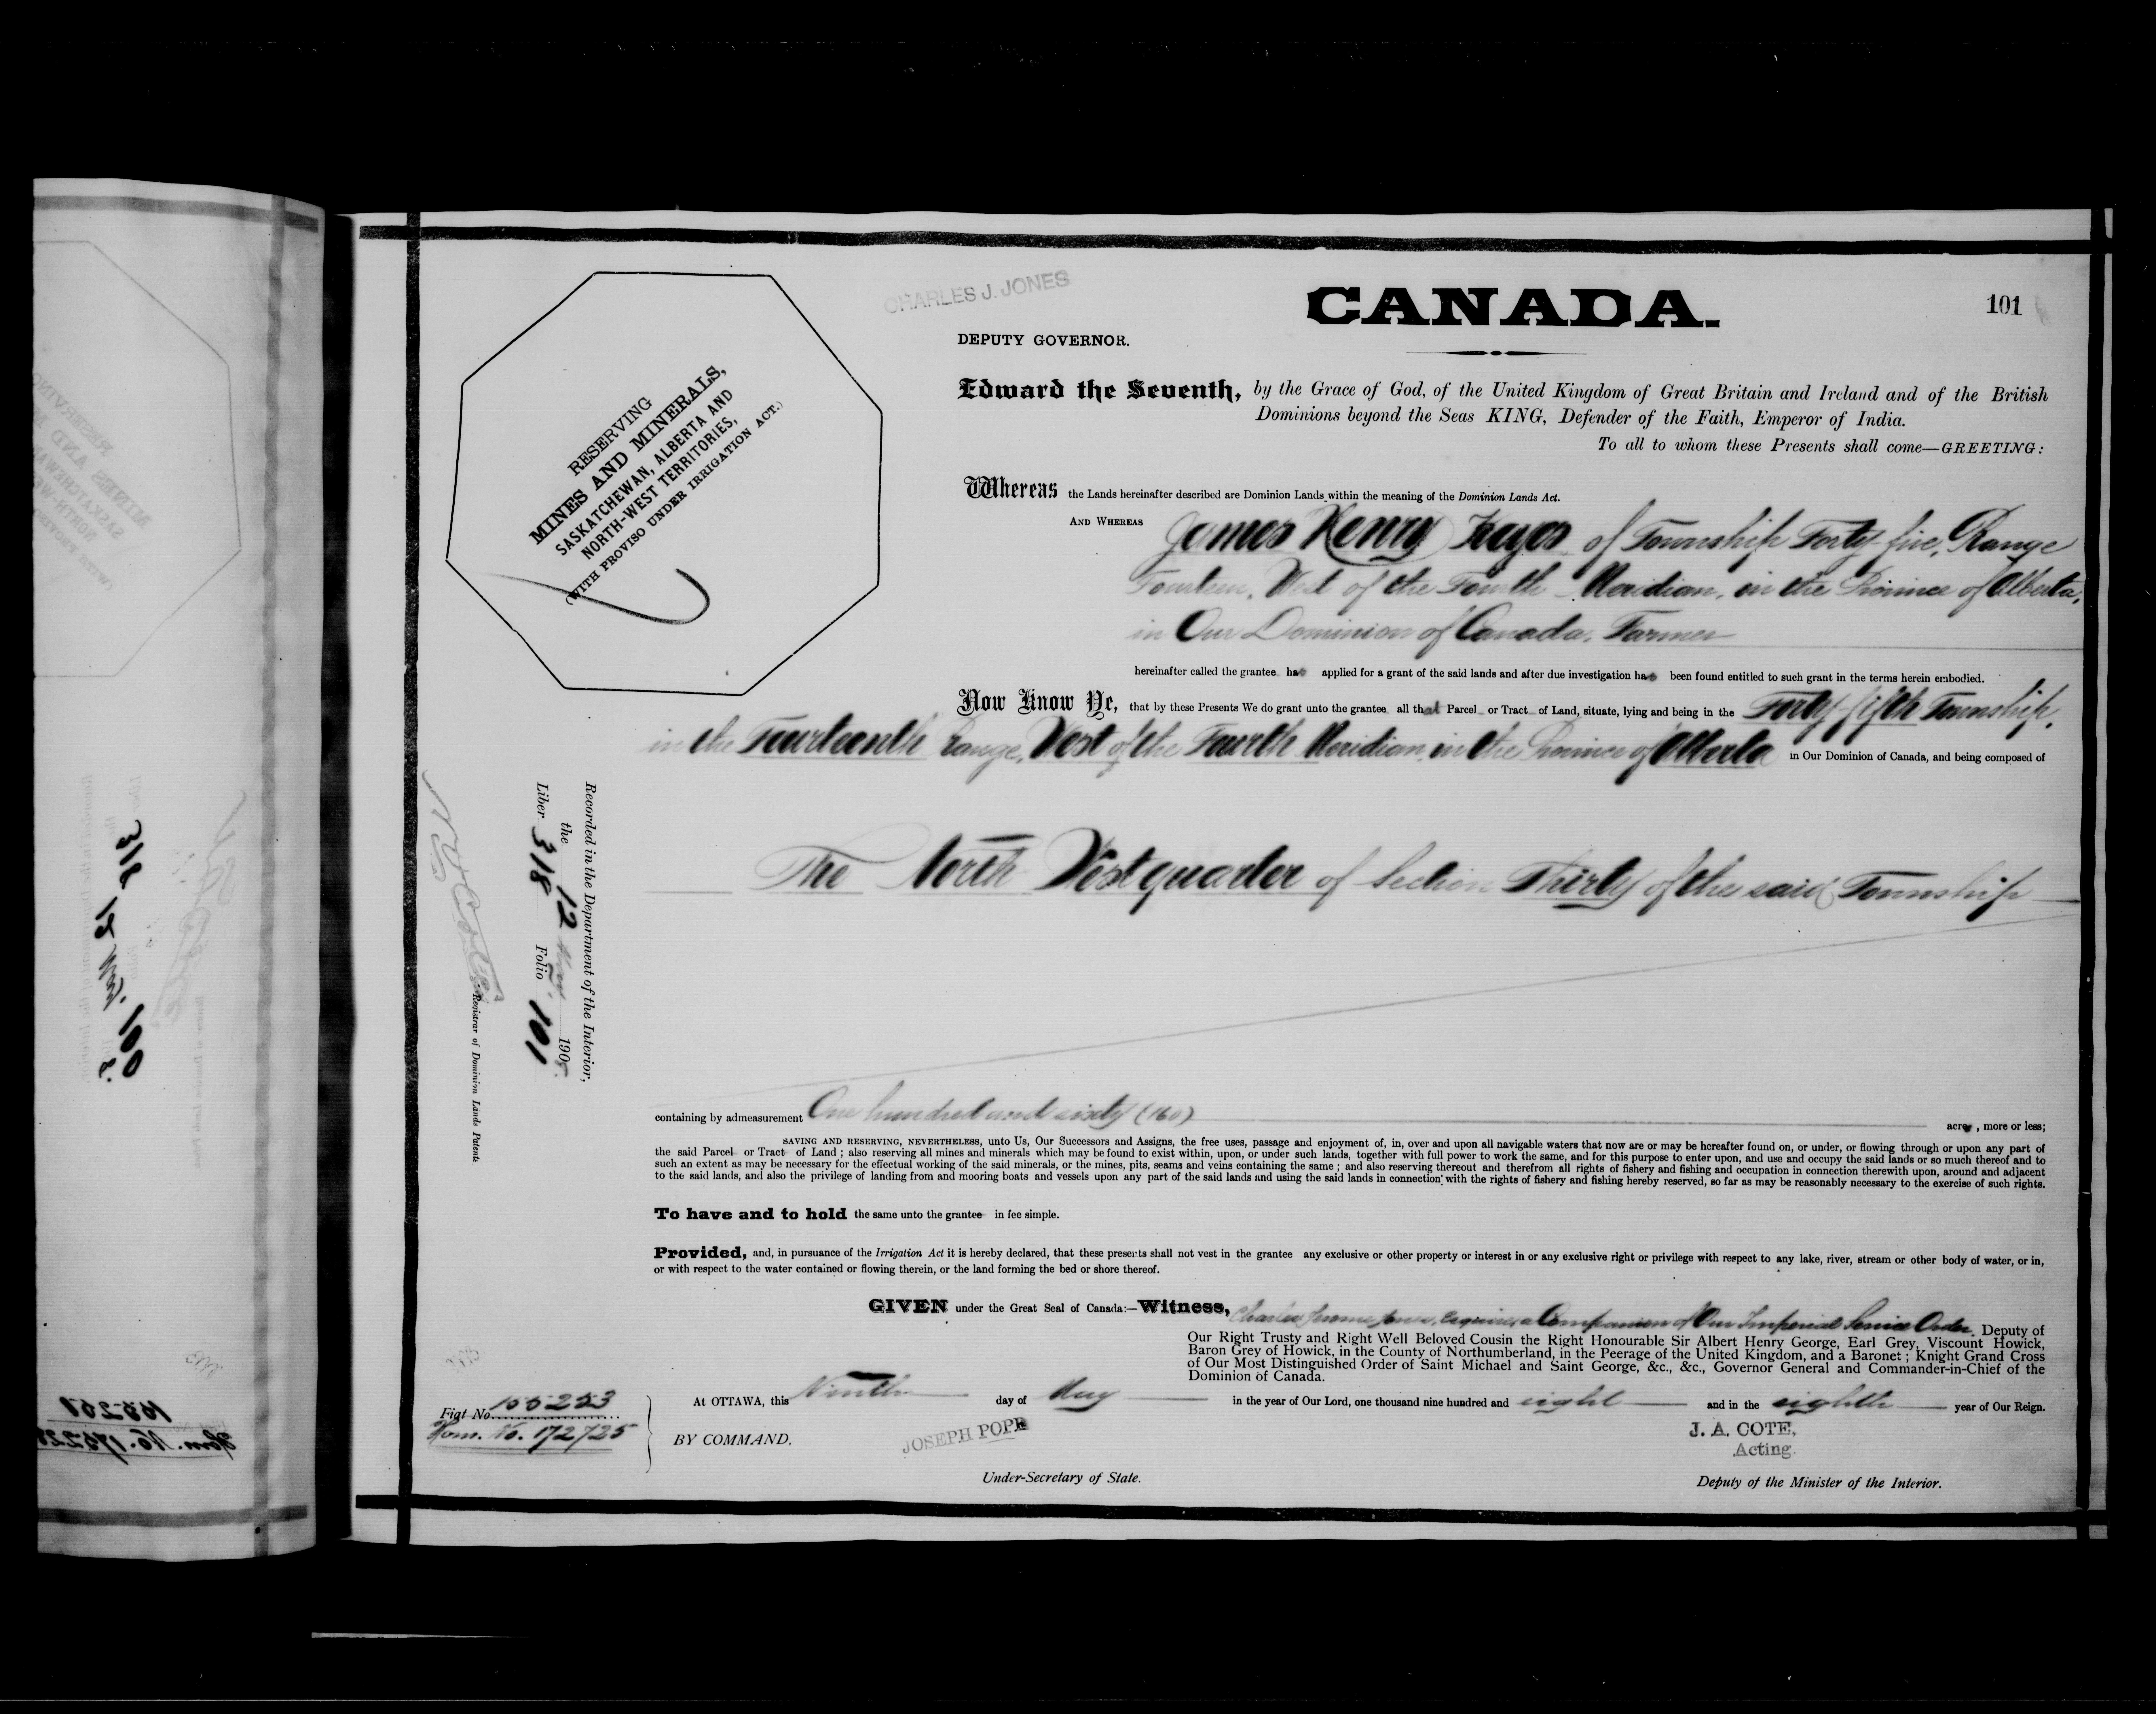 CHARLES J. JONES
CANADA.
101
DEPUTY GOVERNOR.
RESERVING
MINES AND MINERALS,
SASKATCHEWAN, ALBERTA AND
NORTH-WEST TERRITORIES,
(WITH PROVISO UNDER IRRIGATION ACT.)
Edward the Seventh, by the Grace of God, of the United Kingdom of Great Britain and Ireland and of the British
Dominions beyond the Seas KING, Defender of the Faith, Emperor of India.
To all to whom these Presents shall come—GREETING:
Whereas the Lands hereinafter described are Dominion Lands within the meaning of the Dominion Lands Act.
AND WHEREAS James Henry Keyes of Township Forty-five, Range
Fourteen, West of the Fourth Meridian, in the Province of Alberta,
in Our Dominion of Canada, Farmer
hereinafter called the grantee has applied for a grant of the said lands and after due investigation has been found entitled to such grant in the terms herein embodied.
Now Know Ye, that by these Presents We do grant unto the grantee all that Parcel or Tract of Land, situate, lying and being in the Forty-fifth Township,
in the Fourteenth Range, West of the Fourth Meridian, in the Province of Alberta in Our Dominion of Canada, and being composed of
The North West quarter of Section Thirty of the said Township
Recorded in the Department of the Interior,
the 12 190
Liber 318 Folio 101
Registrar of Dominion Lands Patents
containing by admeasurement One hundred and sixty (160) acres, more or less;
SAVING AND RESERVING, NEVERTHELESS, unto Us, Our Successors and Assigns, the free uses, passage and enjoyment of, in, over and upon all navigable waters that now are or may be hereafter found on, or under, or flowing through or upon any part of
the said Parcel or Tract of Land ; also reserving all mines and minerals which may be found to exist within, upon, or under such lands, together with full power to work the same, and for this purpose to enter upon, and use and occupy the said lands or so much thereof and to
such an extent as may be necessary for the effectual working of the said minerals, or the mines, pits, seams and veins containing the same ; and also reserving thereout and therefrom all rights of fishery and fishing and occupation in connection therewith upon, around and adjacent
to the said lands, and also the privilege of landing from and mooring boats and vessels upon any part of the said lands and using the said lands in connection with the rights of fishery and fishing hereby reserved, so far as may be reasonably necessary to the exercise of such rights.
To have and to hold the same unto the grantee in fee simple.
Provided, and, in pursuance of the Irrigation Act it is hereby declared, that these presents shall not vest in the grantee any exclusive or other property or interest in or any exclusive right or privilege with respect to any lake, river, stream or other body of water, or in,
or with respect to the water contained or flowing therein, or the land forming the bed or shore thereof.
GIVEN under the Great Seal of Canada:—Witness, Charles Jerome Jones, Esquire, a Companion of Our Imperial Service Order, Deputy of
Our Right Trusty and Right Well Beloved Cousin the Right Honourable Sir Albert Henry George, Earl Grey, Viscount Howick,
Baron Grey of Howick, in the County of Northumberland, in the Peerage of the United Kingdom, and a Baronet ; Knight Grand Cross
of Our Most Distinguished Order of Saint Michael and Saint George, &c., &c., Governor General and Commander-in-Chief of the
Dominion of Canada.
At OTTAWA, this Ninth day of May in the year of Our Lord, one thousand nine hundred and eight and in the eighth year of Our Reign.
Fiat No. 155253
Hom. No. 172725
BY COMMAND,
JOSEPH POPE
Under-Secretary of State.
J. A. COTE,
Acting
Deputy of the Minister of the Interior.